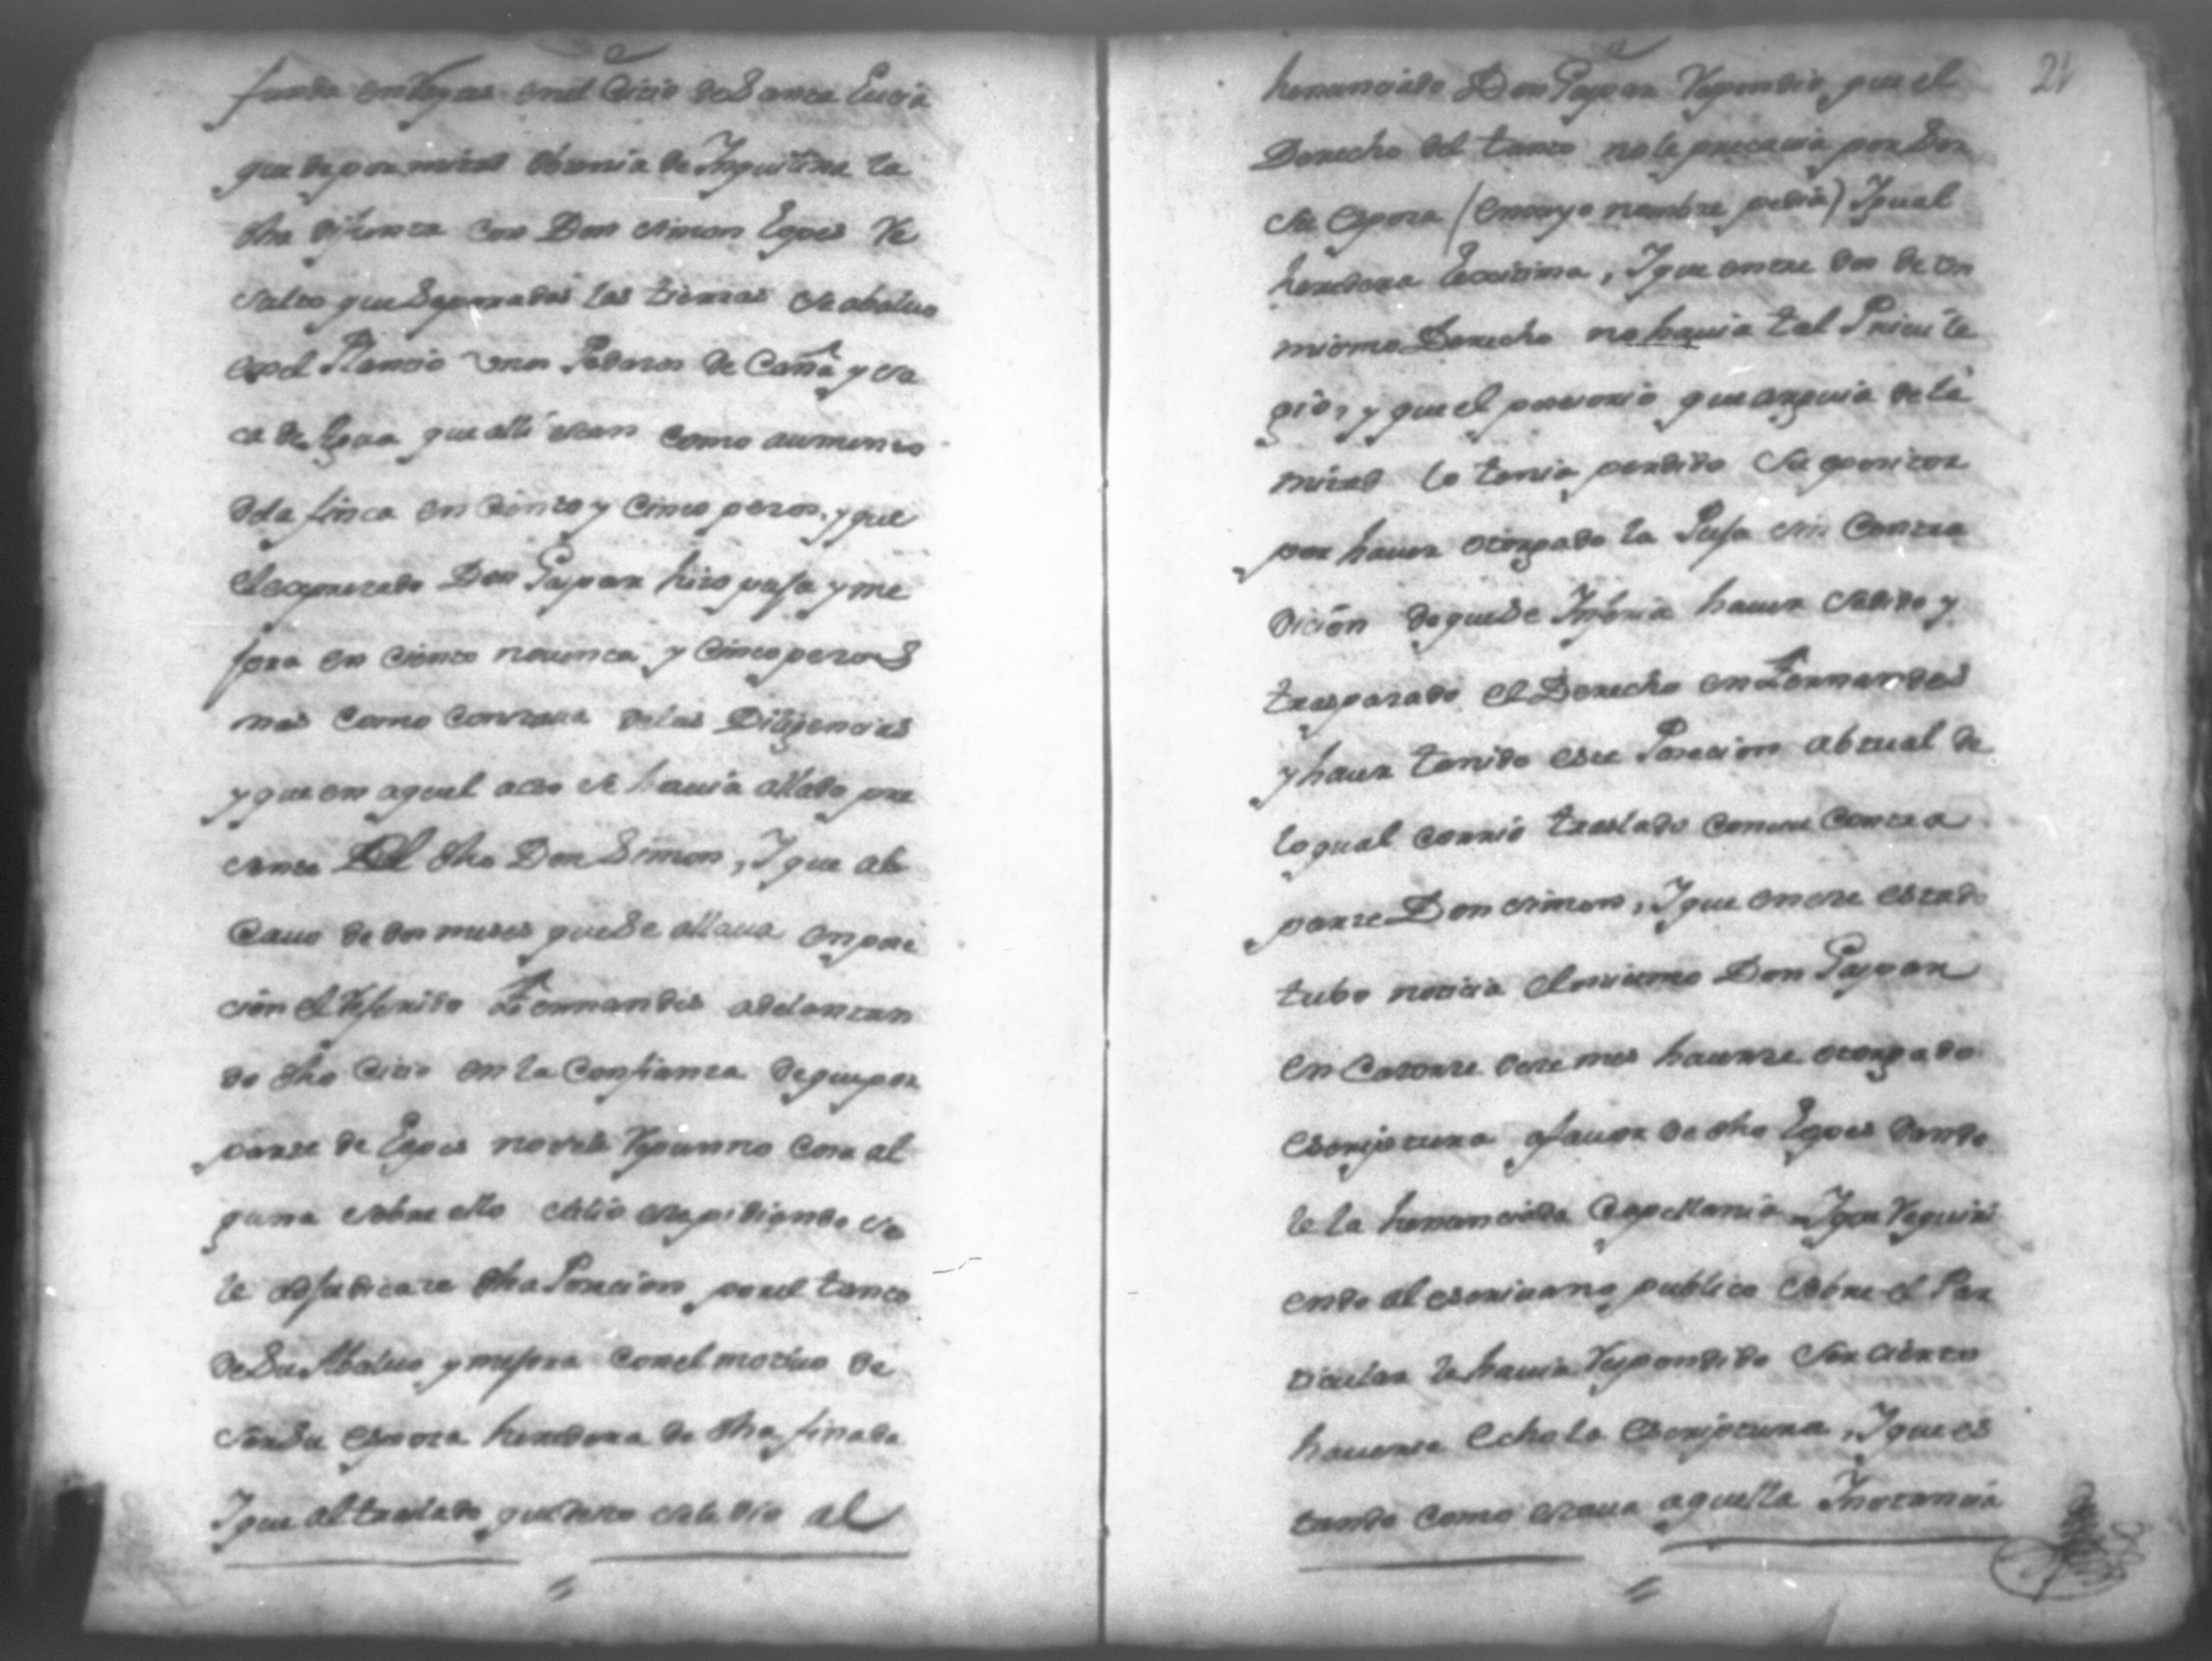 funda en tierras en el Citio de Santa Lucia
que de por mitad thenia de Inquilina la
dha difunta con Don Simon Egues Re
salto que Separadas las tierras se abaluo
en el Plantio unos Pedasos de Caña y sa
ca de Agua que alli estan como aumento
dela finca en ciento y cinco pesos, y que
el expresado Don Gaspar hizo pusa y me
jora en ciento nouenta y Cinco pesos
mas como constaua delas Diligencias
y que en aquel acto se hauia allado pre
sente El dho Don Simon, Y que al
Cauo de dos meses que Se allaua en pose
cion el Referido Fernandes adelantan
do dho Citio en la Confianza de que por
parte de Egues no se le Repunno cosa al
guna sobre ello salio este pidiendo se
le adjudicase dha Porcion por el tanto
de Su Abaluo y mejora con el motiuo de
ser Su esposa heredera de dha finada
Y que al traslado que de esto se le dio al
21
henunciado Don Gaspar Respondio que el
Derecho del tanto no le precauia por Ser
su esposa (en cuyo nombre pedia) Igual
heredera Lexitima, Y que entre dos de un
mismo Derecho no hauia tal Priuile
gio, y que el patrimonio que arguia de la
mitad lo tenia perdido su opocitor
por hauer otorgado la Pusa sin Contra
dicion de que Se Inferia hauer Cedido y
trasparado el Derecho en Fernandes
y hauer tenido este Posecion abtual de
lo qual corrio traslado con la Contra
parte Don Simon, Y que en este estado
tubo noticia el mismo Don Gaspar
en Catorze deste mes hauerse otorgado
Escriptura a fauor de dho Egues dando
le la henunciada Capellania Y que Requiri
endo al escriuano publico sobre el Par
ticular le hauia Respondido Ser cierto
hauerse Echo la Escriptura, Y que es
tando como estaua aquella Instancia